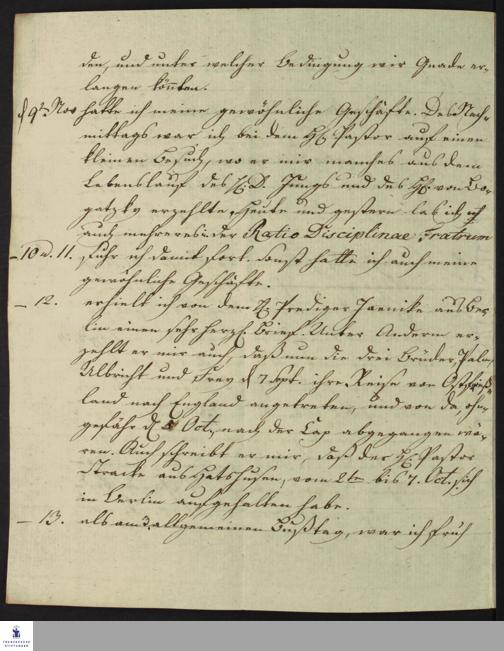 den, und unter welcher Bedingung wir Gnade er-
langen könten.
d 9t. Nov hatte ich meine gewöhnliche Geschäfte. Des Nach-
mittags war ich bei dem H. Pastor auf einen
kleinen Besuch, wo er mir manches aus dem
Lebenslauf des H. D. Jungs und des H. von Bo-
gatzky erzehlte, Heute und gestern las ich
auch mehreres in der Ratio Disciplinae Fratrum
– 10 u. 11. fuhr ich damit fort. Sonst hatte ich auch meine
gewöhnliche Geschäfte.
– 12. erhielt ich von dem H. Prediger Jaenike aus Ber-
lin einen sehr herzl. Brief. Unter Anderm er-
zehlt er mir auch, daß nun die drei Brüder, Palm,
Ulbricht und Frey d 7 Sept. ihre Reise von Ostfries-
land nach England angetreten, und von da ohn-
gefähr d Oct. nach der Cap abgegangen wä-
ren. Auch schreibt er mir, daß der H. Pastor
Stracke aus Hatshusen, vom 2ten bis 7. Oct. sich
in Berlin aufgehalten habe.
– 13. als am allgemeinen Bußtag, war ich früh
FRANCKESCHE
STIFTUNGEN